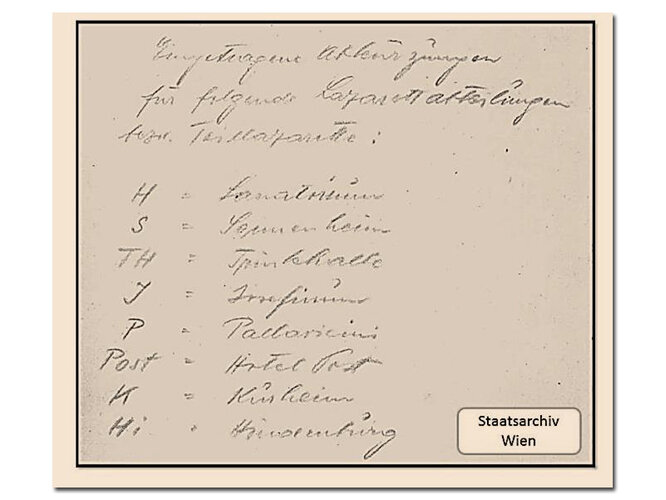 Eingetragene Abkürzungen
für folgende Lazarettabteilungen
bezw. Teillazarette:
H = Sanatorium
S = Sonnenheim
TH = Trinkhalle
J = Josefinum
P = Pallavicini
Post = Hotel Post
K = Kurheim
Hi = Hindenburg
Staatsarchiv
Wien